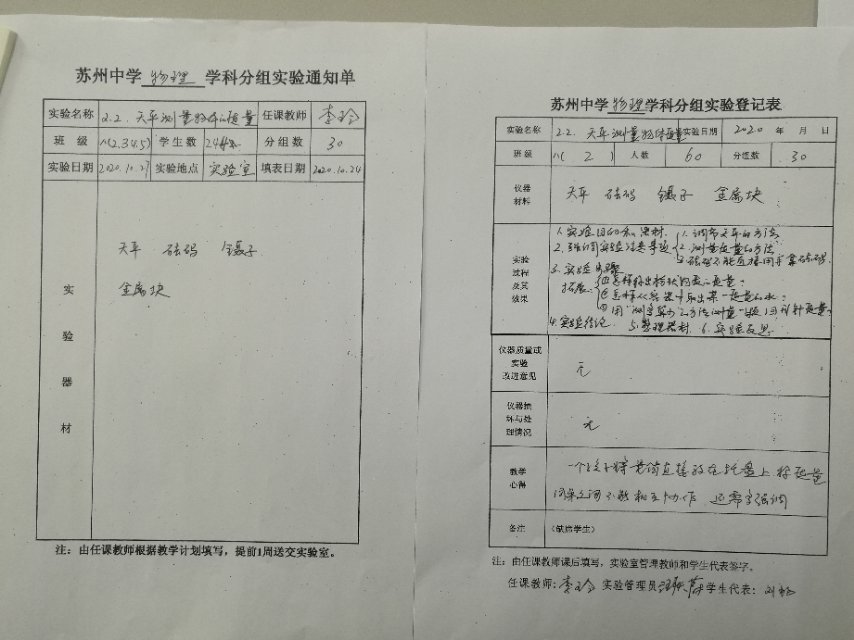 苏州中学 物理 学科分组实验通知单
实验名称 2.2. 天平测量物体的质量 任课教师 李玲
班 级 八(2.3.4.5) 学生数 244 分组数 30
实验日期 2020.10.27 实验地点 实验室 填表日期 2020.10.24
天平 砝码 镊子
金属块
实
验
器
材
注：由任课教师根据教学计划填写，提前1周送交实验室。
苏州中学物理学科分组实验登记表
实验名称 2.2. 天平测量物体质量 实验日期 2020 年 月 日
班级 八(2) 人数 60 分组数 30
仪器
材料
天平 砝码 镊子 金属块
实验
过程
及其
效果
1. 实验目的和器材. 1. 调节天平的方法
2. 强调实验注意事项 2. 测量质量的方法
3. 砝码不能直接用手拿砝码
3. 实验步骤
拓展: ①怎样称出粉状的质量
②怎样从容器中取出某一定量的水
③用"测多算少"的方法测量一枚回形针质量
4. 实验结论 5. 整理器材 6. 实验反思
仪器质量或
实验
改进意见
无
仪器损
坏与处
理情况
无
教学
心得
一个孩子将 直接放在托盘上称质量
同桌之间不能相互协作 还需强调
备注 (缺席学生)
注：由任课教师课后填写，实验室管理教师和学生代表签字。
任课教师：李玲 实验管理员 学生代表：刘